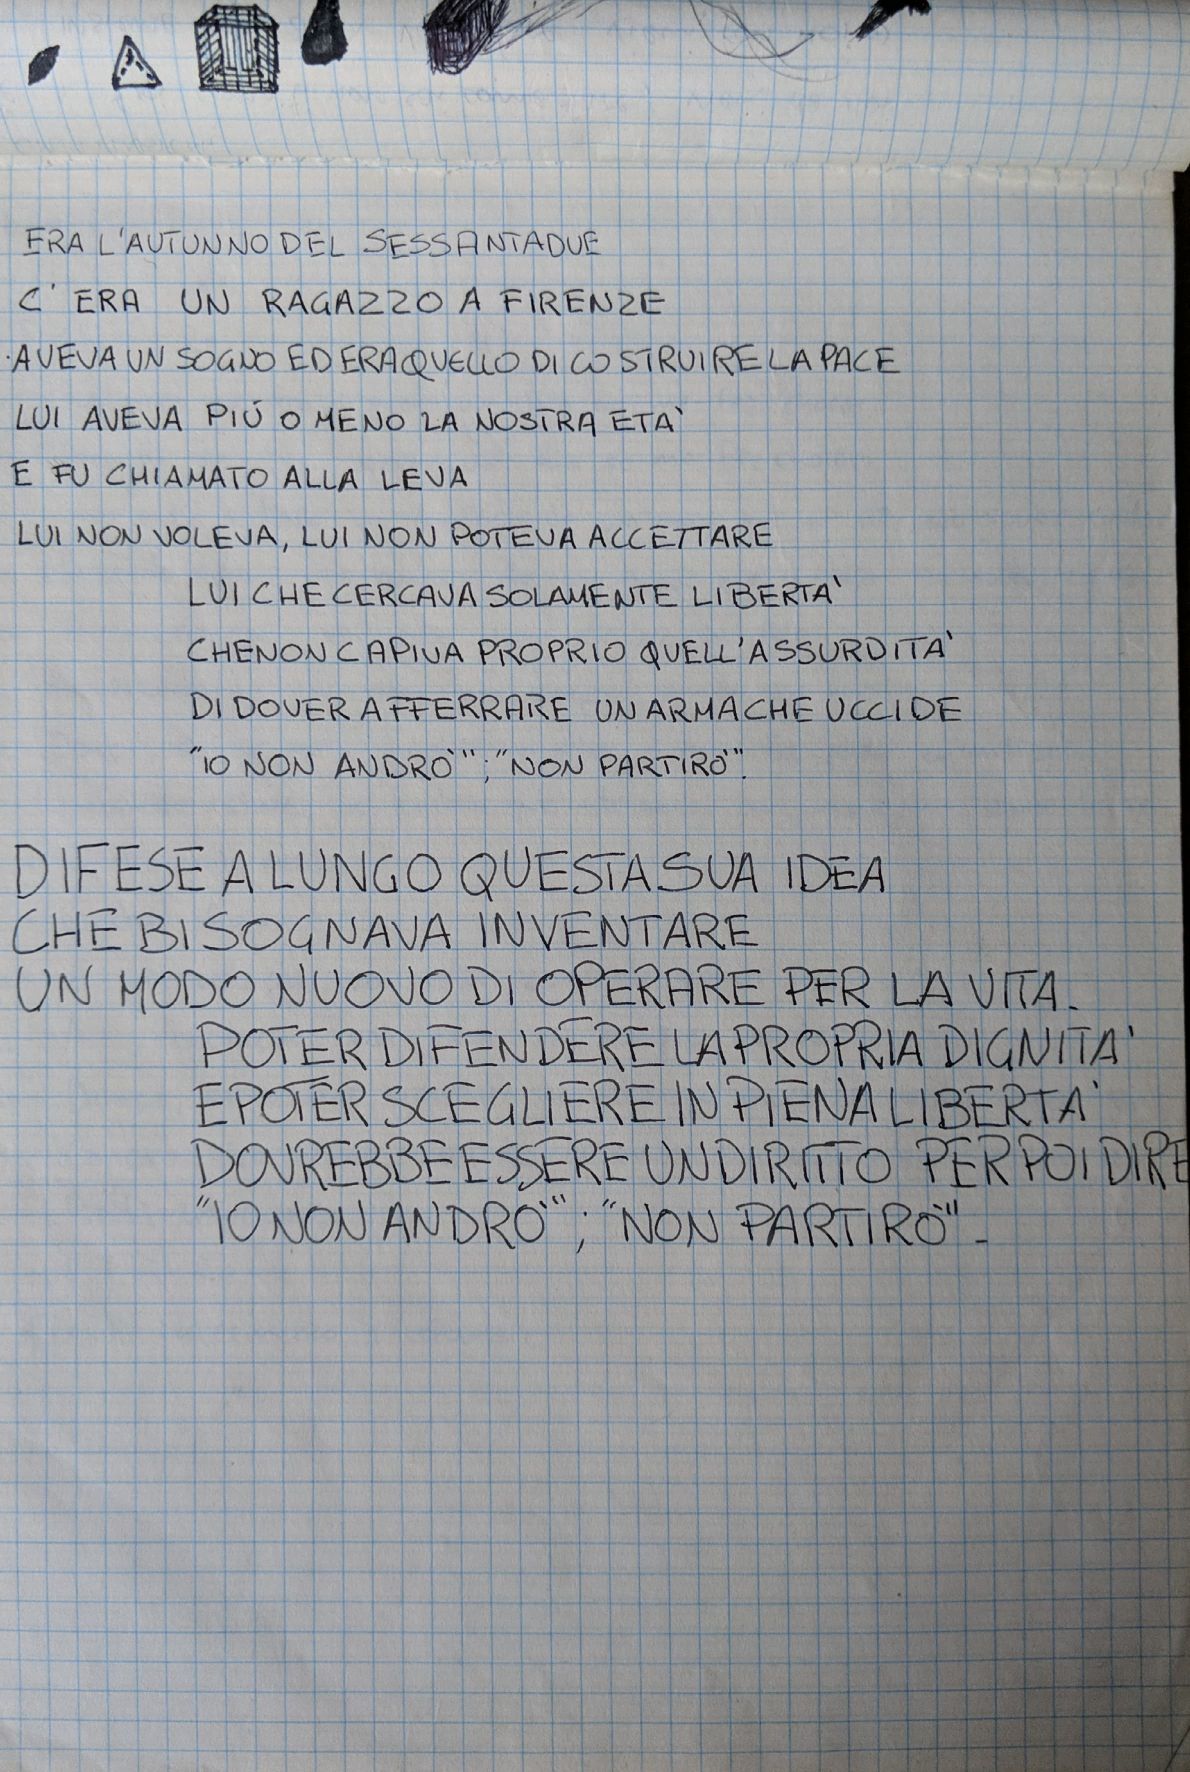 ERA L'AUTUNNO DEL SESSANTADUE
C'ERA UN RAGAZZO A FIRENZE
AVEVA UN SOGNO ED ERA QUELLO DI COSTRUIRE LA PACE
LUI AVEVA PIÚ O MENO LA NOSTRA ETA'
E FU CHIAMATO ALLA LEVA
LUI NON VOLEVA, LUI NON POTEVA ACCETTARE
LUI CHE CERCAVA SOLAMENTE LIBERTA'
CHE NON CAPIVA PROPRIO QUELL'ASSURDITA'
DI DOVER AFFERRARE UN ARMA CHE UCCIDE
"IO NON ANDRO'"; "NON PARTIRO'".
DIFESE A LUNGO QUESTA SUA IDEA
CHE BISOGNAVA INVENTARE
UN MODO NUOVO DI OPERARE PER LA VITA.
POTER DIFENDERE LA PROPRIA DIGNITA'
E POTER SCEGLIERE IN PIENA LIBERTA'
DOVREBBE ESSERE UN DIRITTO PER POI DIRE
"IO NON ANDRO'"; "NON PARTIRO'".